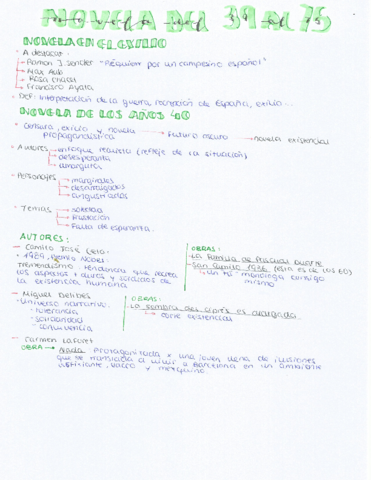 NOVELA DEL 39 AL 75
NOVELA EN EL EXILIO
A destacar:
Ramon J. Sender "Réquiem por un campesino español"
Max Aub
Rosa Chacel
Francisco Ayala
DEF: Interpretación de la guerra, recreación de España, exilio...
NOVELA DE LOS AÑOS 40
Censura, exilio y novela propagandística → Futuro oscuro → novela existencial
Autores → enfoque realista (reflejo de la situación)
desesperanza
amargura
Personajes → marginales
desarraigados
angustiados
Temas → soledad
frustración
falta de esperanza.
AUTORES:
- Camilo José Cela:
1989, Premio Nobel.
tremendismo: tendencia que recrea los aspectos + duros y sórdidos de la existencia humana
OBRAS:
La familia de Pascual Duarte
San Camilo 1936 (esta es de los 60)
→ Un "tú" monologa consigo mismo
- Miguel Delibes
Universo narrativo:
· tolerancia
· solidaridad
· convivencia
OBRAS:
La sombra del ciprés es alargada.
→ corte existencial
- Carmen Laforet
OBRA → Nada: Protagonizada x una joven llena de ilusiones
que se traslada a vivir a Barcelona en un ambiente
asfixiante, vacío y mezquino.